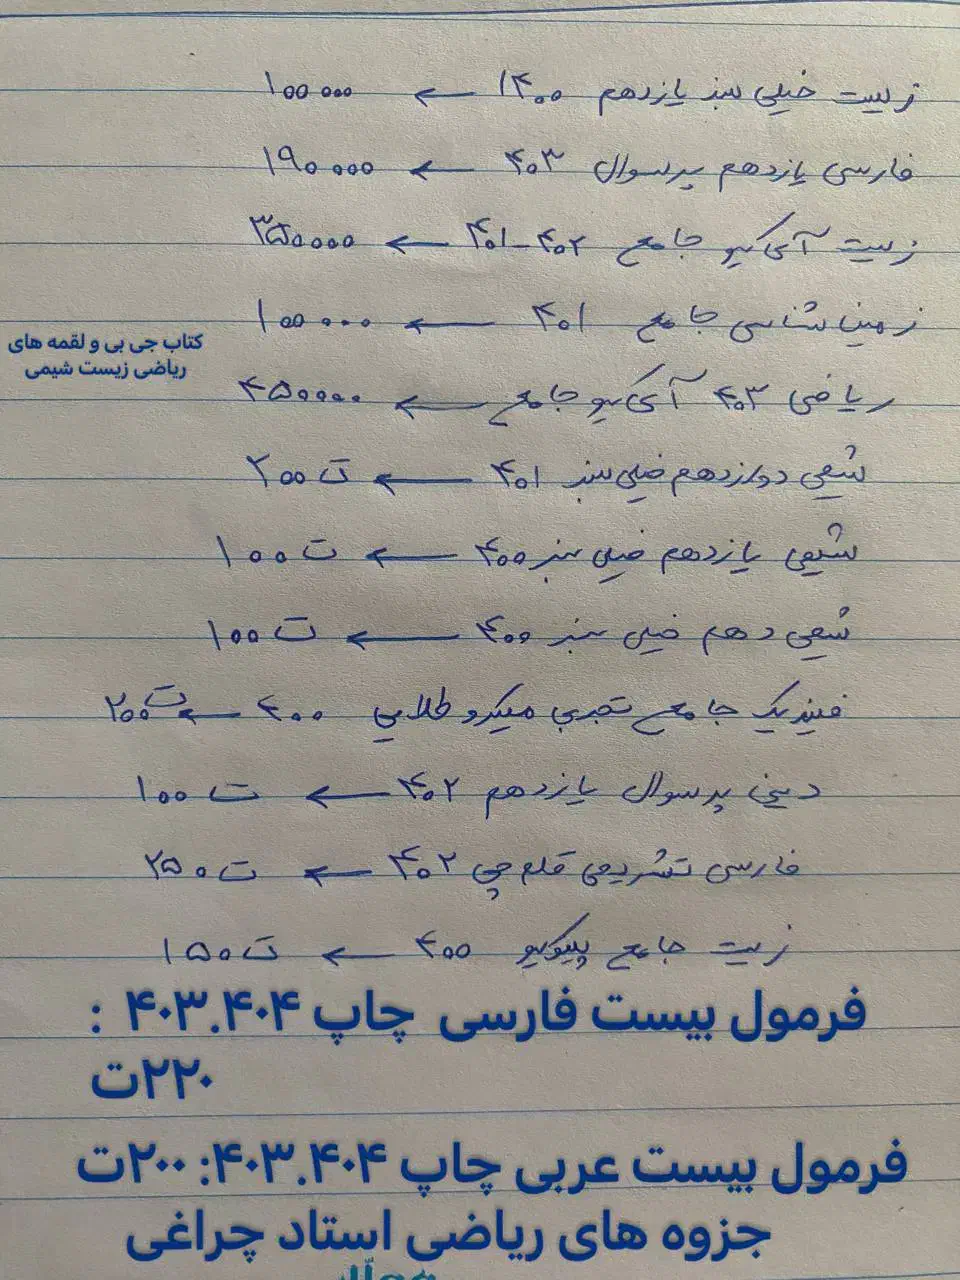 زیست خیلی سبز یازدهم ۱۴۰۰ ← ۱۰۰۰۰۰
فارسی یازدهم پرسوال ۴۰۳ ← ۱۹۰۰۰۰
زیست آی کیو جامع ۴۰۲-۴۰۱ ← ۳۵۰۰۰۰
زمین شناسی جامع ۴۰۱ ← ۱۰۰۰۰۰
کتاب جی بی و لقمه های
ریاضی زیست شیمی
ریاضی ۴۰۳ آی کیو جامع ← ۴۵۰۰۰۰
شیمی دوازدهم خیلی سبز ۴۰۱ ← ۲۰۰ ت
شیمی یازدهم خیلی سبز ۴۰۰ ← ۱۰۰ ت
شیمی دهم خیلی سبز ۴۰۰ ← ۱۰۰ ت
فیزیک جامع تجربی میکرو طلایی ۴۰۰ ← ۲۰۰ ت
دینی پرسوال یازدهم ۴۰۲ ← ۱۰۰ ت
فارسی تشریحی قلم چی ۴۰۲ ← ۲۵۰ ت
زیست جامع پیکویو ۴۰۰ ← ۱۵۰ ت
فرمول بیست فارسی چاپ ۴۰۳.۴۰۴ :
۲۲۰ت
فرمول بیست عربی چاپ ۴۰۳.۴۰۴: ۲۰۰ت
جزوه های ریاضی استاد چراغی